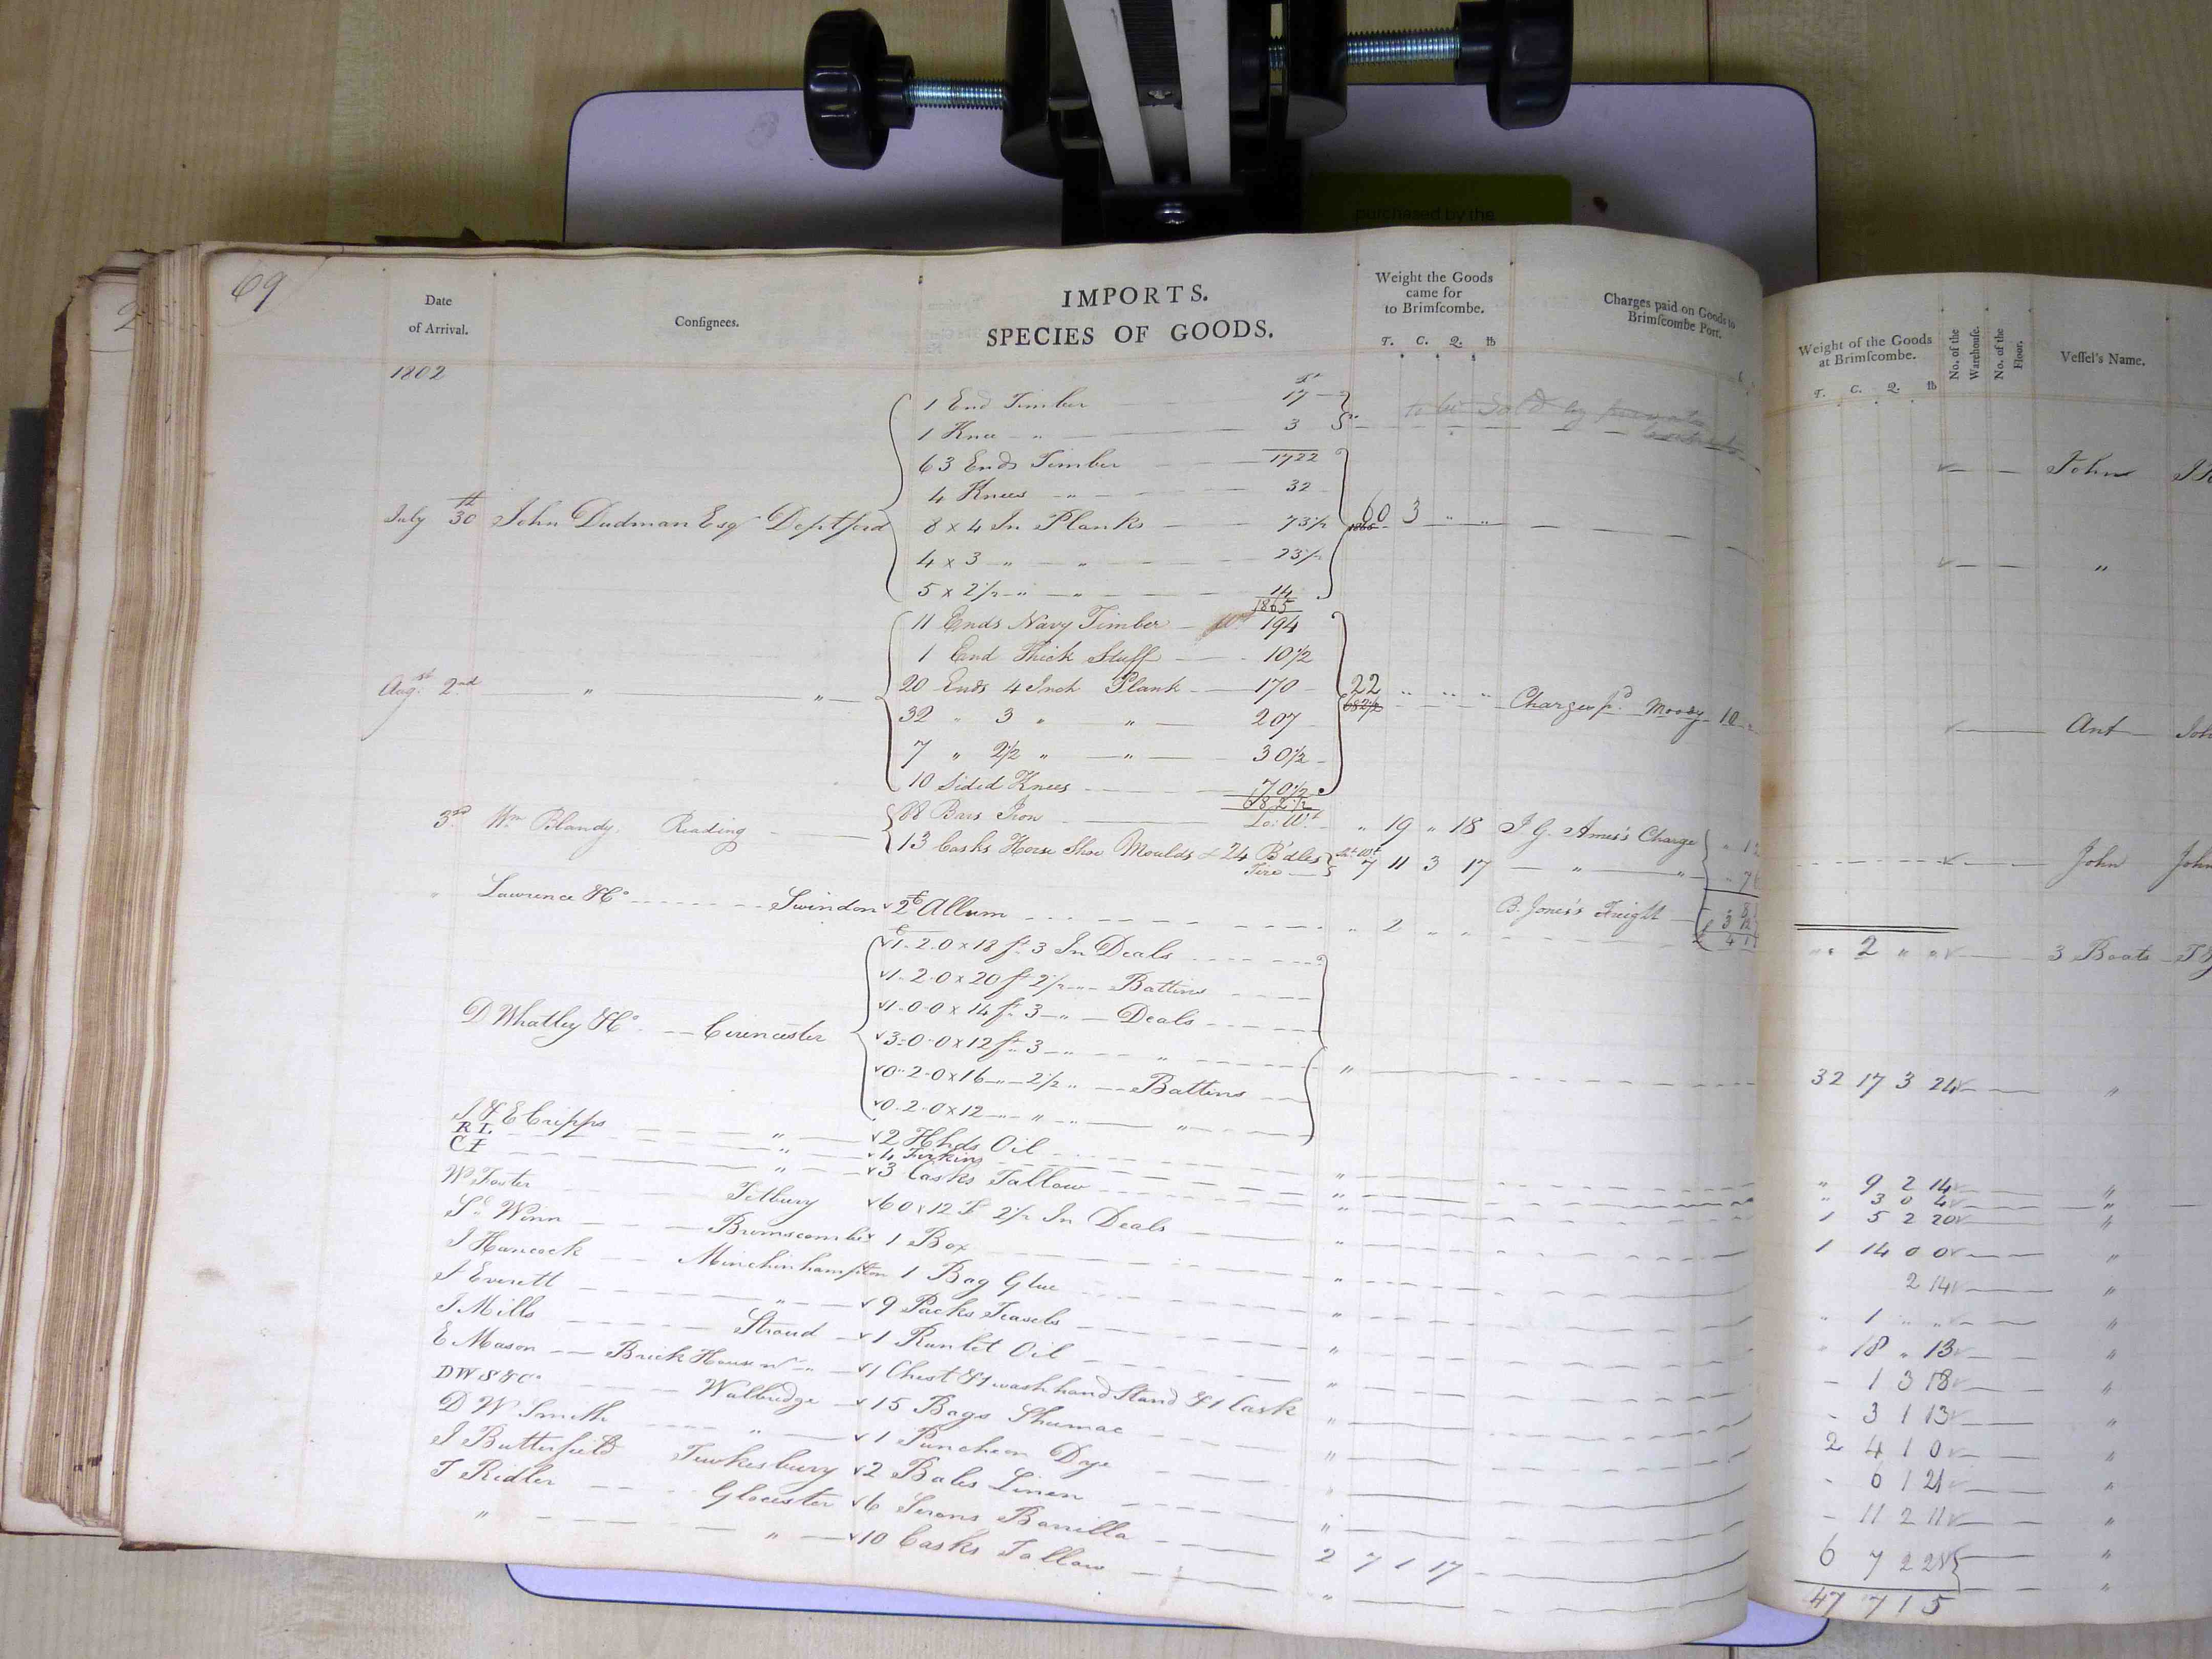 purchased by the
69
Date of Arrival.
Consignees.
IMPORTS.
SPECIES OF GOODS.
Weight the Goods came for to Brimſcombe.
T. C. Q. lb
Charges paid on Goods to Brimſcombe Port.
Weight of the Goods at Brimſcombe.
T. C. Q. lb
No. of the Warehouſe.
No. of the Floor.
Veſſel's Name.
1802
1 End Timber 17
to be Sold by private
1 Knee " 3
63 Ends Timber 1722 John
4 Knees " 32
July 30th John Dudman Esqr Deptford 8 x 4 In Planks 73½ 60 3 " "
1865
4 x 3 " " 23½ "
5 x 2½ " " 14
1865
11 Ends Navy Timber Wt 194
1 End Thick Stuff 10½
Augst 2nd " " 20 Ends 4 Inch Plank 170 22 " " " Charges pd Moody 10 Ant
682½
32 " 3 " " 207
7 " 2½ " " 30½
10 Sided Knees 70½
682½
3rd Wm Blandy. Reading 88 Bars Iron Lo: Wt " 19 " 18 J G. Ames's Charge John
13 Casks Horse Shoe Moulds & 24 B'dles Tire 7 11 3 17 " "
B. Jones's Freight
" Lawrence & Co Swindon 2 Allum " 2 " " " 2 " " 3 Boats
1-2-0 x 18 ft 3 In Deals
1-2-0 x 20 ft 2½ " Battins
1-0-0 x 14 ft 3 " Deals
D Whatley & Co Cirencester 3-0-0 x 12 ft 3 " " " 32 17 3 24 "
0-2-0 x 16 " 2½ " Battins
0-2-0 x 12 " " "
J & E Cripps " 2 Hhds Oil " " 9 2 14 "
RL 4 Firkins " " 3 0 4 "
CI " 3 Casks Tallow " 1 5 2 20 "
W Foster Tetbury 60 x 12 F 2½ In Deals " 1 14 0 0 "
Sl Winn Brimscombe 1 Box " 2 14 "
J Hancock Minchinhampton 1 Bag Glue " " 1 " " "
J Everett " 9 Packs Teasels " " 18 " 13 "
J Mills Stroud 1 Runlet Oil " - 1 3 18 "
E Mason Brick House nr " 1 Chest & 1 wash hand Stand & 1 Cask " - 3 1 13 "
DWS & Co Walbridge 15 Bags Shumac " 2 4 1 0 "
D W Smith " 1 Puncheon Dye " - 6 1 21 "
J Butterfield Tewkesbury 2 Bales Linen " - 11 2 11 "
T Ridler Glocester 6 Serons Barilla 2 7 1 17 6 7 2 25 "
" " 10 Casks Tallow " "
47 7 1 5